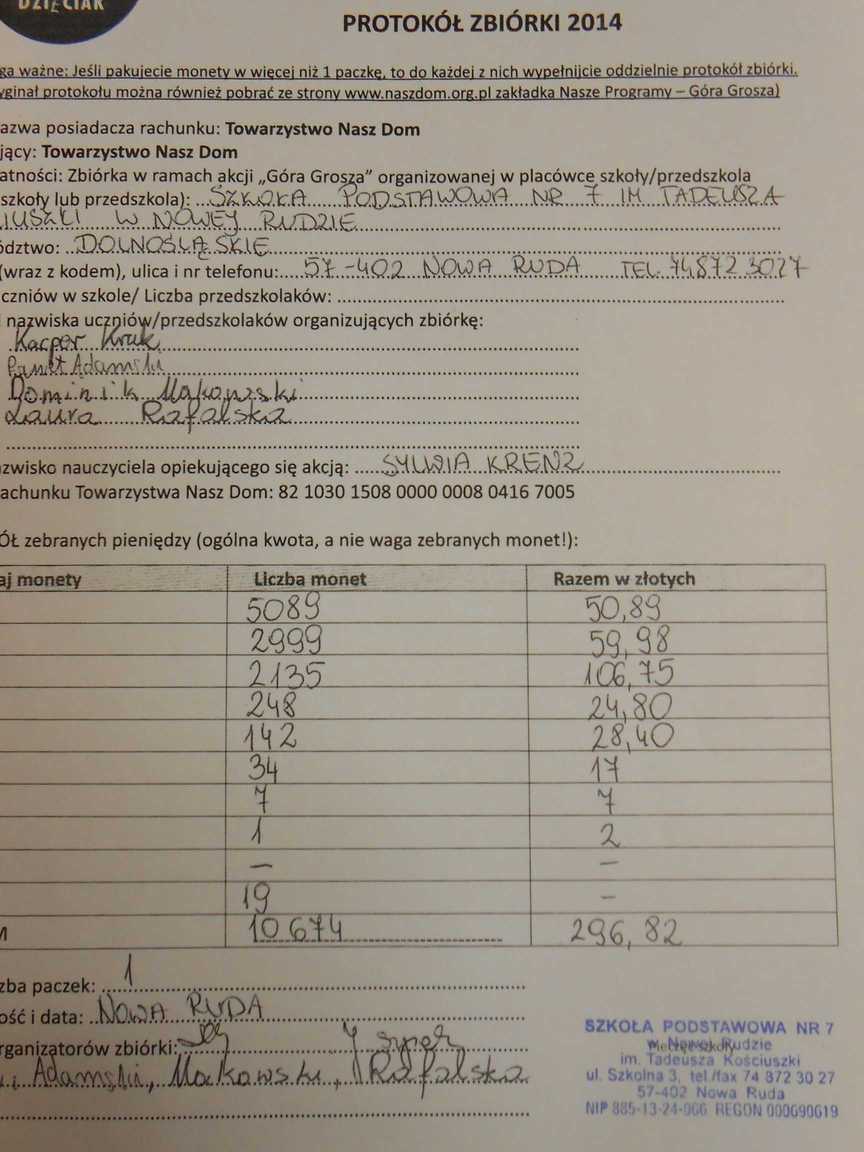 DZIĘCIAK
PROTOKÓŁ ZBIÓRKI 2014
ga ważne: Jeśli pakujecie monety w więcej niż 1 paczkę, to do każdej z nich wypełnijcie oddzielnie protokół zbiórki.
yginał protokołu można również pobrać ze strony www.naszdom.org.pl zakładka Nasze Programy – Góra Grosza)
azwa posiadacza rachunku: Towarzystwo Nasz Dom
jący: Towarzystwo Nasz Dom
atności: Zbiórka w ramach akcji „Góra Grosza” organizowanej w placówce szkoły/przedszkola
szkoły lub przedszkola): SZKOŁA PODSTAWOWA NR 7 IM TADEUSZA
IUSZKI W NOWEJ RUDZIE
ództwo: DOLNOŚLĄSKIE
(wraz z kodem), ulica i nr telefonu: 57-402 NOWA RUDA TEL. 748723027
czniów w szkole/ Liczba przedszkolaków:
nazwiska uczniów/przedszkolaków organizujących zbiórkę:
Kacper Kruk
Adamski
Dominik Makowski
Laura Rafalska
azwisko nauczyciela opiekującego się akcją: SYLWIA KRENZ
achunku Towarzystwa Nasz Dom: 82 1030 1508 0000 0008 0416 7005
ÓŁ zebranych pieniędzy (ogólna kwota, a nie waga zebranych monet!):
aj monety Liczba monet Razem w złotych
5089 50,89
2999 59,98
2135 106,75
248 24,80
142 28,40
34 17
7 7
1 2
– –
19 –
M 10674 296,82
zba paczek: 1
ość i data: NOWA RUDA
rganizatorów zbiórki:
Adamski, Makowski, Rafalska
SZKOŁA PODSTAWOWA NR 7
w Nowej Rudzie
im. Tadeusza Kościuszki
ul. Szkolna 3, tel./fax 74 872 30 27
57-402 Nowa Ruda
NIP 885-13-24-966 REGON 000690619